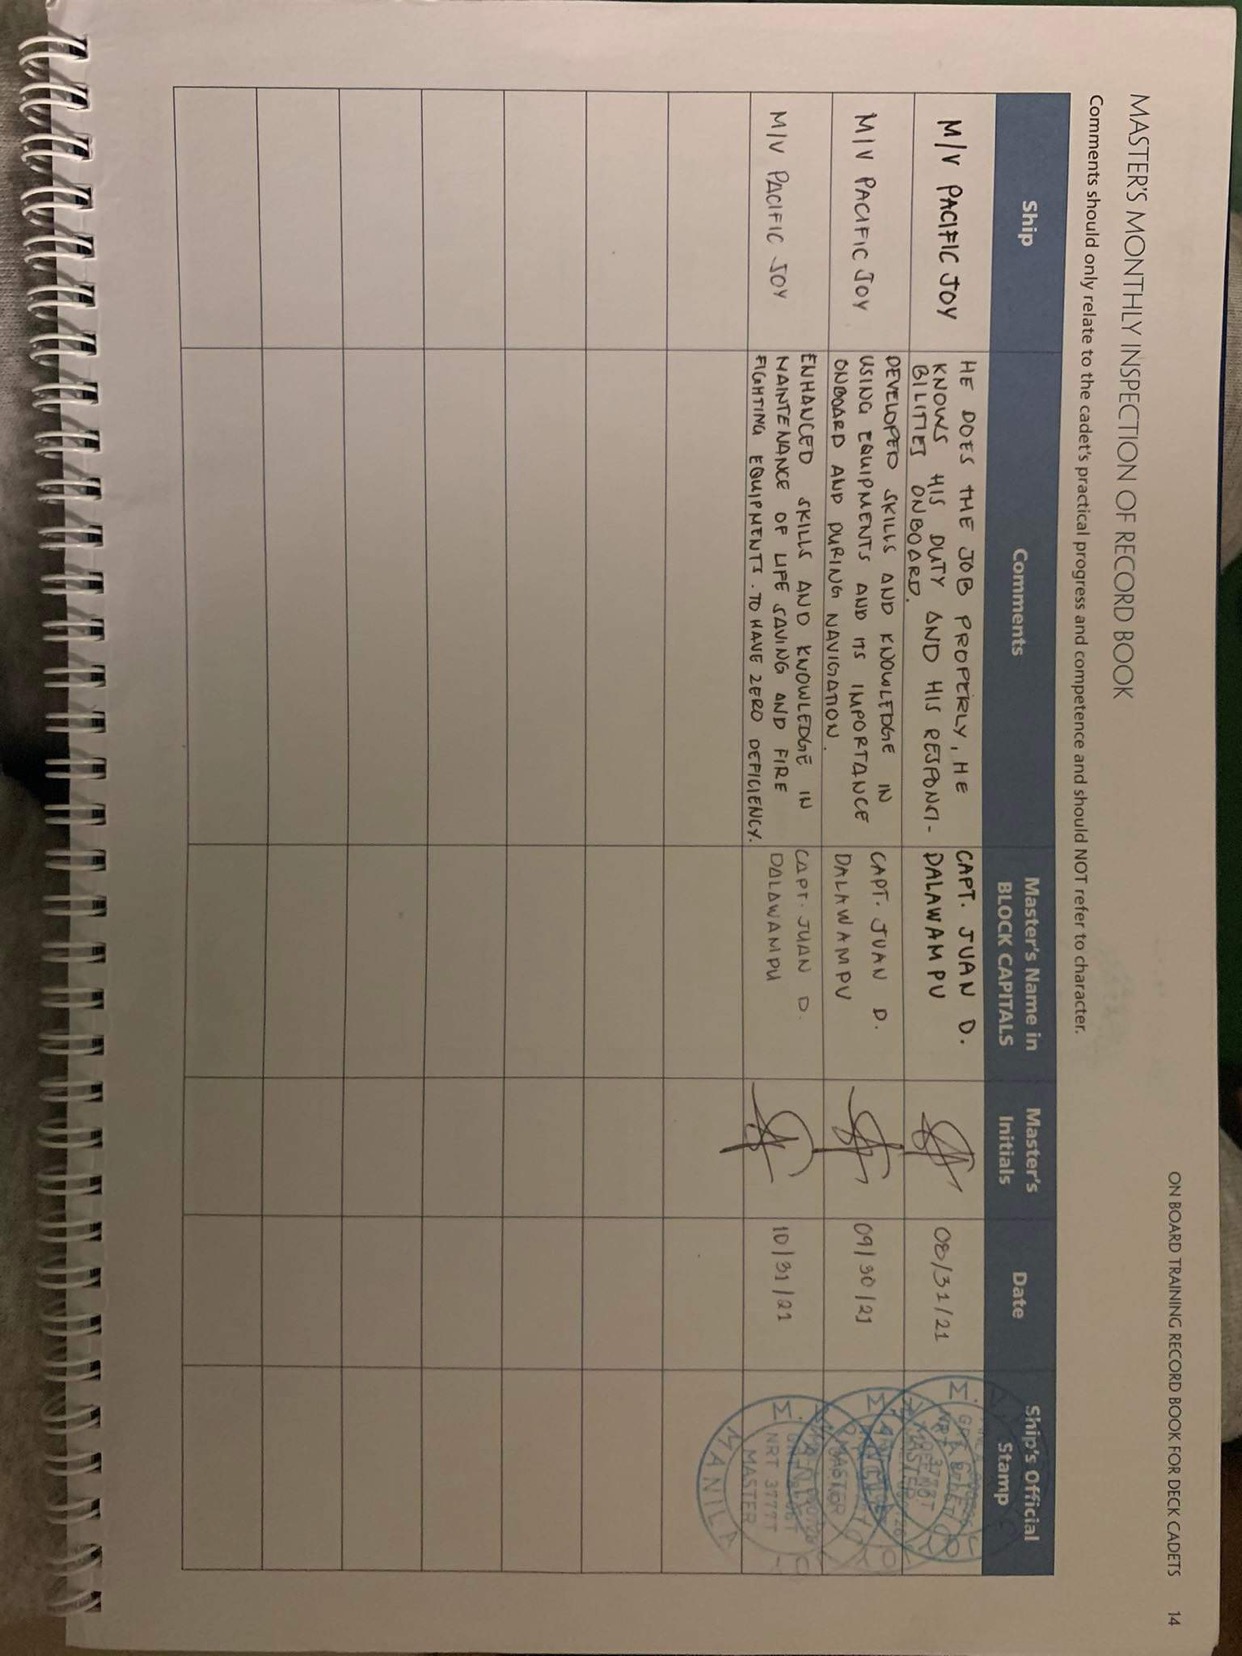 ON BOARD TRAINING RECORD BOOK FOR DECK CADETS 14
MASTER'S MONTHLY INSPECTION OF RECORD BOOK
Comments should only relate to the cadet's practical progress and competence and should NOT refer to character.
Ship
Comments
Master's Name in
BLOCK CAPITALS
Master's
Initials
Date
Ship's Official
Stamp
M/V PACIFIC JOY
HE DOES THE JOB PROPERLY, HE
KNOWS HIS DUTY AND HIS RESPONCI-
BILITIES ONBOARD.
CAPT. JUAN D.
DALAWAMPU
08/31/21
M/V PACIFIC JOY
DEVELOPED SKILLS AND KNOWLEDGE IN
USING EQUIPMENTS AND ITS IMPORTANCE
ONBOARD AND DURING NAVIGATION.
CAPT. JUAN D.
DALAWAMPU
09/30/21
MASTER
M/V PACIFIC JOY
ENHANCED SKILLS AND KNOWLEDGE IN
MAINTENANCE OF LIFE SAVING AND FIRE
FIGHTING EQUIPMENTS. TO HAVE ZERO DEFICIENCY.
CAPT. JUAN D.
DALAWAMPU
10/31/21
NRT 3777T
MASTER
MANILA